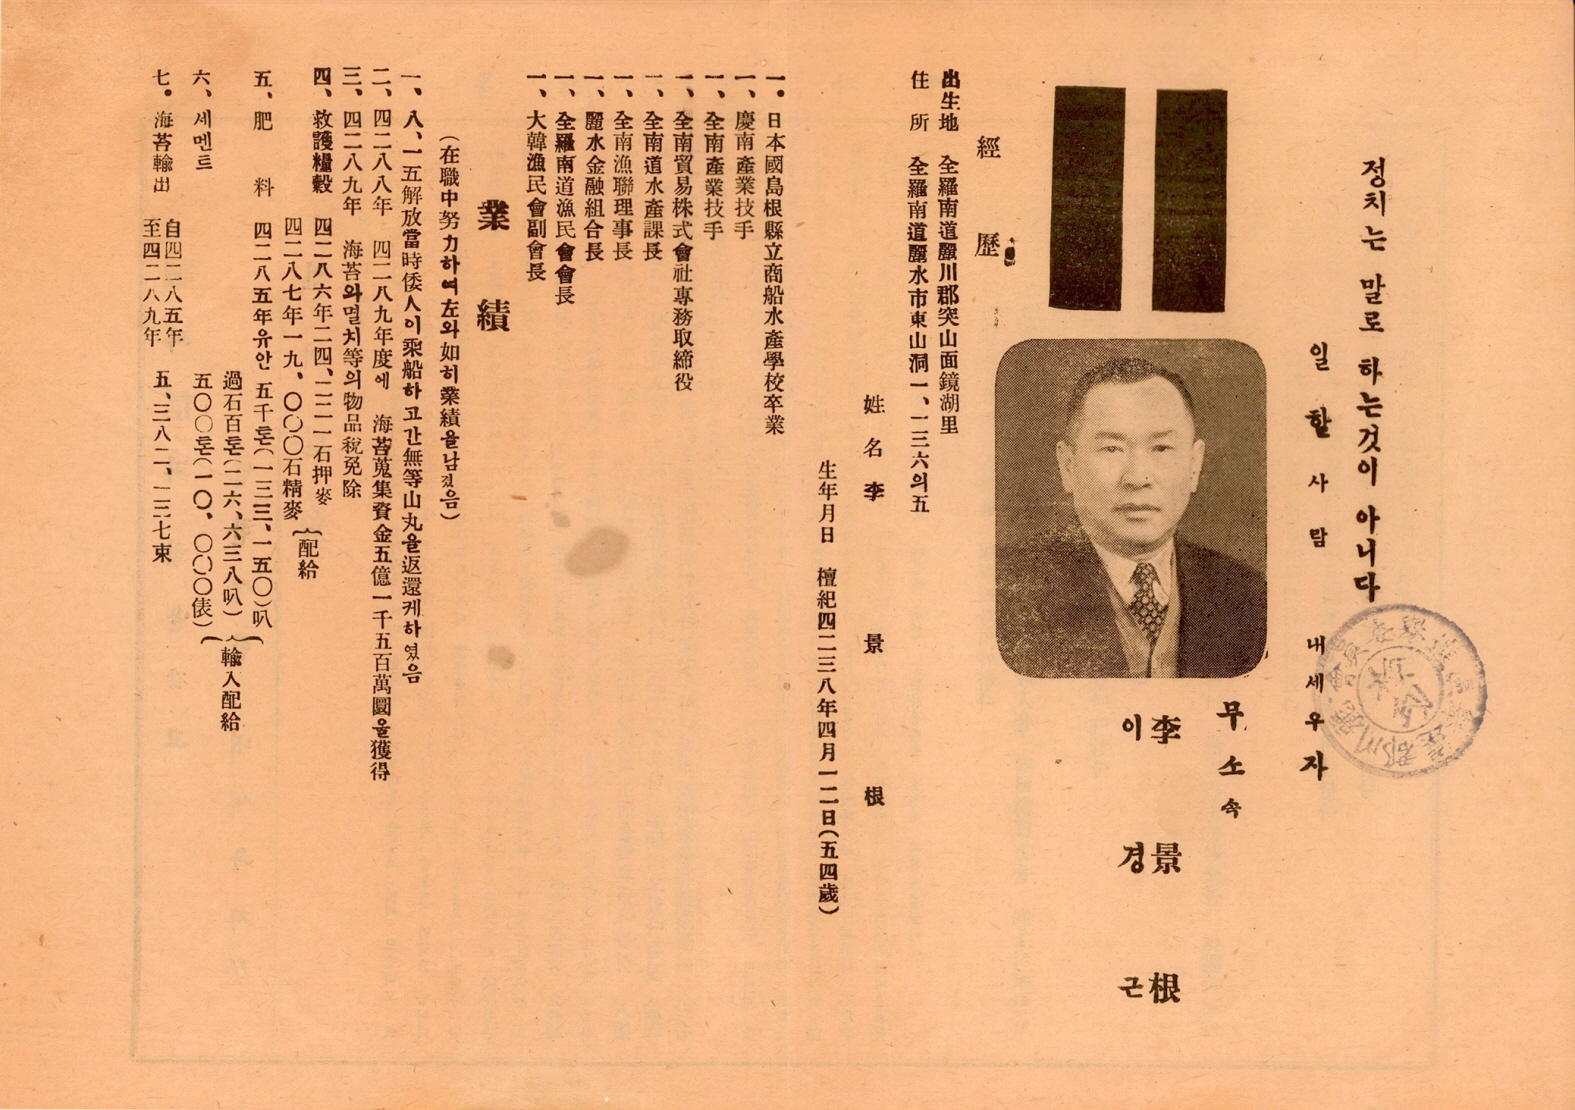 정치는 말로 하는것이 아니다
일할사람 내세우자
무소속
李景根
이경근
經歷
出生地 全羅南道麗川郡突山面鏡湖里
住所 全羅南道麗水市東山洞一、一三六의五
姓名 李景根
生年月日 檀紀四二三八年四月一二日(五四歲)
一。日本國島根縣立商船水產學校卒業
一、慶南產業技手
一、全南產業技手
一、全南貿易株式會社專務取締役
一、全南道水產課長
一、全南漁聯理事長
一、麗水金融組合長
一、全羅南道漁民會會長
一、大韓漁民會副會長
業績
(在職中努力하여左와如히業績을남겼음)
一、八、一五解放當時倭人이乘船하고간無等山丸을返還케하였음
二、四二八八年 四二八九年度에 海苔蒐集資金五億一千五百萬圜을獲得
三、四二八九年 海苔와멸치等의物品稅免除
四、救護糧穀 四二八六年二四、二二一石押麥
四二八七年一九、〇〇〇石精麥
配給
五、肥料 四二八五年유안 五千톤(一三三、一五〇)叺
過石百톤(二六、六三八叺)
六、세멘트 五〇〇톤(一〇、〇〇〇俵)
輸入配給
七。海苔輸出 自四二八五年
至四二八九年 五、三八二、二三七束